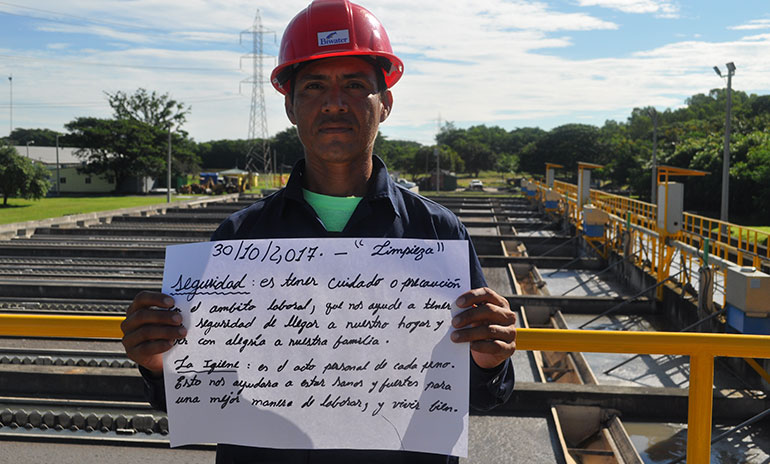 Biwater
30/10/2,017. — "Limpieza"
seguridad : es tener cuidado o precaución
en el ambito laboral, que nos ayude a tener
seguridad de llegar a nuestro hogar y
ver con alegria a nuestra familia.
La Igiene : es el acto personal de cada
Esto nos ayudara a estar sanos y fuertes para
una mejor manera de laborar, y vivir bien.